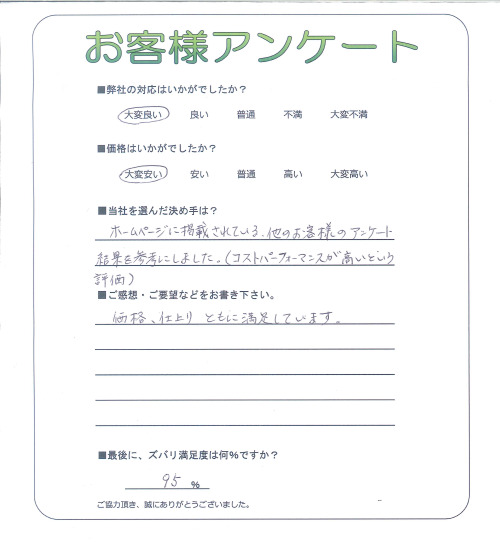 お客様アンケート
■弊社の対応はいかがでしたか？
大変良い 良い 普通 不満 大変不満
■価格はいかがでしたか？
大変安い 安い 普通 高い 大変高い
■当社を選んだ決め手は？
ホームページに掲載されている、他のお客様のアンケート
結果を参考にしました。（コストパーフォーマンスが高いという
評価）
■ご感想・ご要望などをお書き下さい。
価格、仕上り ともに満足しています。
■最後に、ズバリ満足度は何%ですか？
95 %
ご協力頂き、誠にありがとうございました。